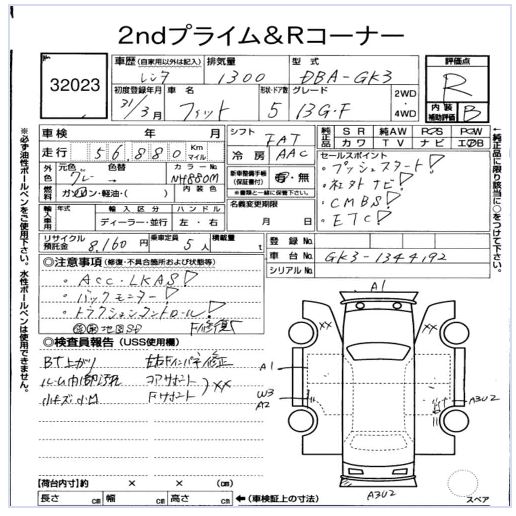 2ndプライム＆Rコーナー
32023
車歴（自家用以外は記入） 排気量 型式
レンタ 1300 DBA-GK3
評価点
R
初度登録年月 車名 形状・ドア数 グレード
31/3月 フィット 5 13G・F
2WD・4WD
内装補助評価 B
※必ず油性ボールペンをご使用下さい。水性ボールペンは使用できません。
車検 年 月
走行 56,880 Km マイル
シフト FAT
冷房 AAC
純正品 SR 純AW PS PW
純正品 カワ TV ナビ エアB
外色 元色 色替 カラーNo.
グレー → NH880M
燃料 ガソリン・軽油・( ) 内装色
新車整備手帳（保証書付） 有・無
※書類と一緒に保管して下さい。
名義変更期限
月 日
セールスポイント
・プッシュスタート!
・社外ナビ!
・CMBS!
・ETC!
←純正品に限り該当に○をつけて下さい。
輸入車用 年式 輸入区分 ハンドル
ディーラー・並行 左・右
リサイクル預託金 8,160円 乗車定員 5人 積載量 t
登録No.
車台No. GK3-1344192
シリアルNo.
◎注意事項（修復・不具合箇所および状態等）
・ACC・LKAS!
・バックモニター!
・トラクションコントロール!
地図SD
◎検査員報告（USS使用欄）
BT上がり
コアサポート
Fサポート
××
A1
××
A1
W3
A2
A3U2
A3U2
スペア
【荷台内寸 約 × × (㎝)】
長さ ㎝ 幅 ㎝ 高さ ㎝ ←（車検証上の寸法）